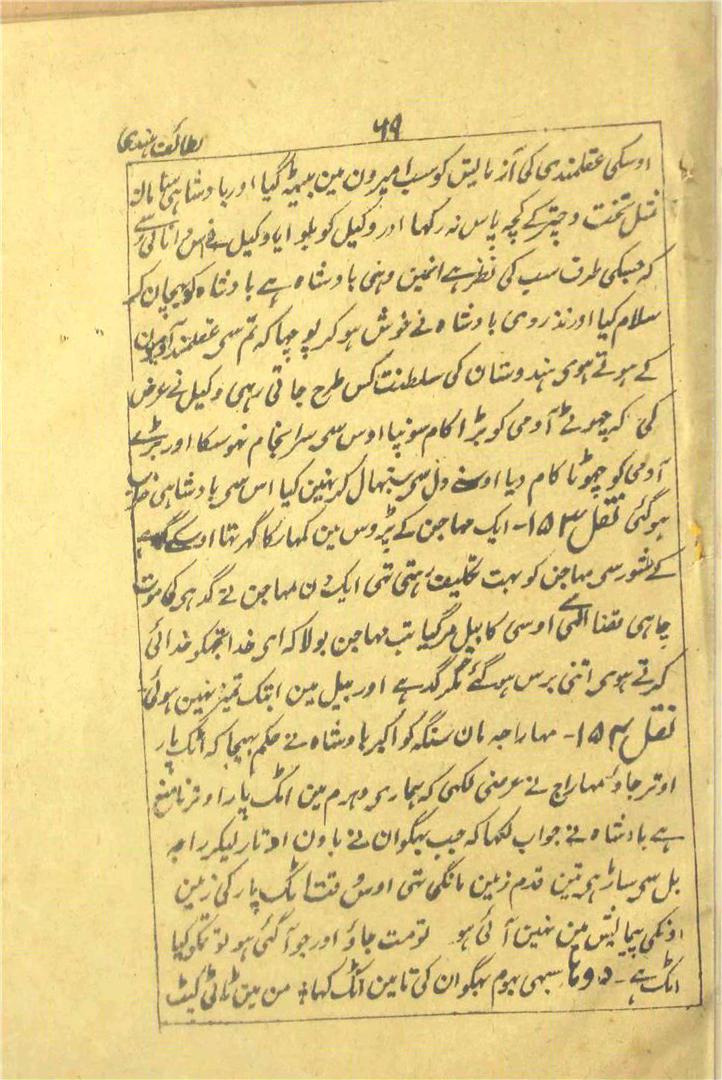 ۶۹
لطائف ہندی
اوسکی عقلمندی کی آزمایش کو سب امیرون مین بیٹھ گیا اور بادشاہی سامان
مثل تخت و چتر کے کچھ پاس نہ رکھا اور وکیل کو بلوایا وکیل نے اس دانائی سے
کہ جسکی طرف سب کی نظر ہے انھین وہی بادشاہ ہے بادشاہ کو پہچان کر
سلام کیا اور نذر دی بادشاہ نے خوش ہو کر پوچھا کہ تم سی عقلمند آدمیون
کے ہوتے ہوی ہندوستان کی سلطنت کس طرح جاتی رہی وکیل نے عرض
کی کہ چھوٹے آدمی کو بڑا کام سونپا اوس سی سرانجام نہوسکا اور بڑے
آدمی کو چھوٹا کام دیا اوسنے دل سی سنبھال کر نہین کیا اس سی بادشاہی خراب
ہو گئی نقل ۱۵۳ - ایک مہاجن کے پڑوس مین کمہار کا گھر تھا اوسکے گدہے
کے شور سی مہاجن کو بہت تکلیف رہتی تھی ایک دن مہاجن نے گدہی کی موت
چاہی قضا الٰہی اوسی کا بیل مر گیا تب مہاجن بولا کہ ای خدا تجھکو خدائی
کرتے ہوی اتنی برس ہو گئے مگر گدہے اور بیل مین ابتک تمیز نہین ہوئی
نقل ۱۵۴ - مہاراجہ مان سنگہ کو اکبر بادشاہ نے حکم بھیجا کہ اٹک پار
اوتر جاؤ مہاراج نے عرضی لکھی کہ ہماری دھرم مین اٹک پار اوترنا منع
ہے بادشاہ نے جواب لکھا کہ جب بھگوان نے باون اوتار لیکر راجہ
بل سی ساڑہی تین قدم زمین مانگی تھی اوسوقت اٹک پار کی زمین
اونکی پیمایش مین نہین آئی ہو تو مت جاؤ اور جو آ گئی ہو تو تمکو کیا
اٹک ہے - دوہا سبھی بھوم بھگوان کی تا مین اٹک کہا * من مین ٹاٹی کیٹ